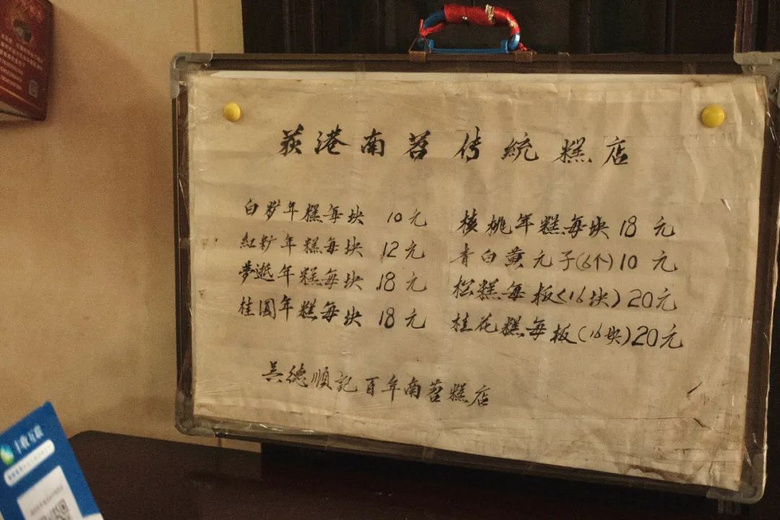 荻港南苕传統糕店
白粉年糕每块 10元
紅粉年糕每块 12元
夢遊年糕每块 18元
桂圆年糕每块 18元
核桃年糕每块 18元
青白黄元子(6个)10元
松糕每板(16块)20元
桂花糕每板(16块)20元
吴德順記百年南苕糕店
丰收互联